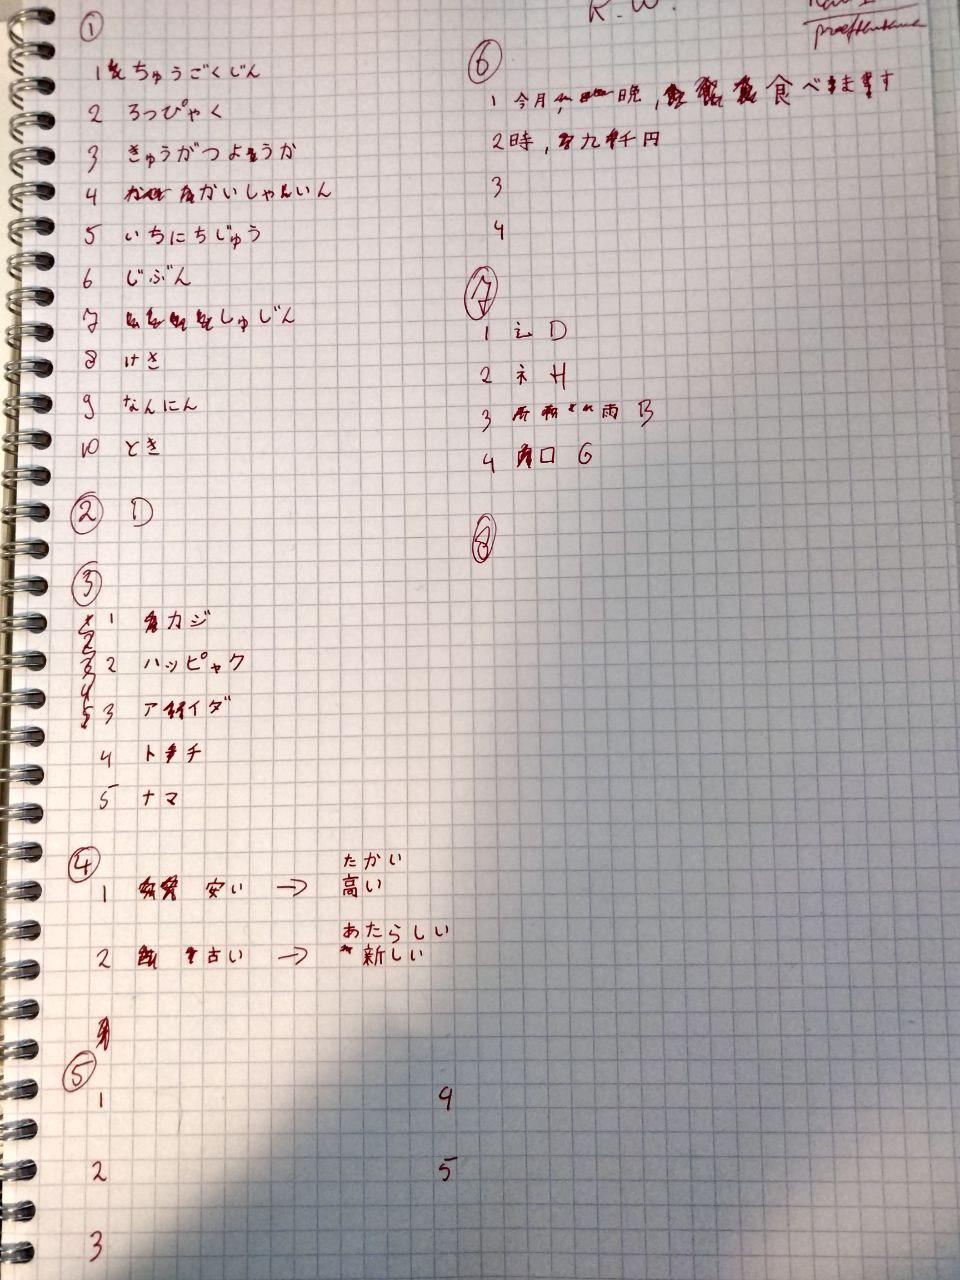 R.W.
①
1 ちゅうごくじん
2 ろっぴゃく
3 きゅうがつようか
4 かいしゃいん
5 いちにちじゅう
6 じぶん
7 しゅじん
8 けさ
9 なんにん
10 とき
② D
③
1 カジ
2 ハッピャク
3 アイダ
4 トチ
5 ナマ
④
たかい
1 安い → 高い
あたらしい
2 古い → 新しい
⑤
1 4
2 5
3
⑥
1 今月, 晩, 食べます
2 時, 九千円
3
4
⑦
1 辶 D
2 礻 H
3 雨 B
4 口 G
⑧